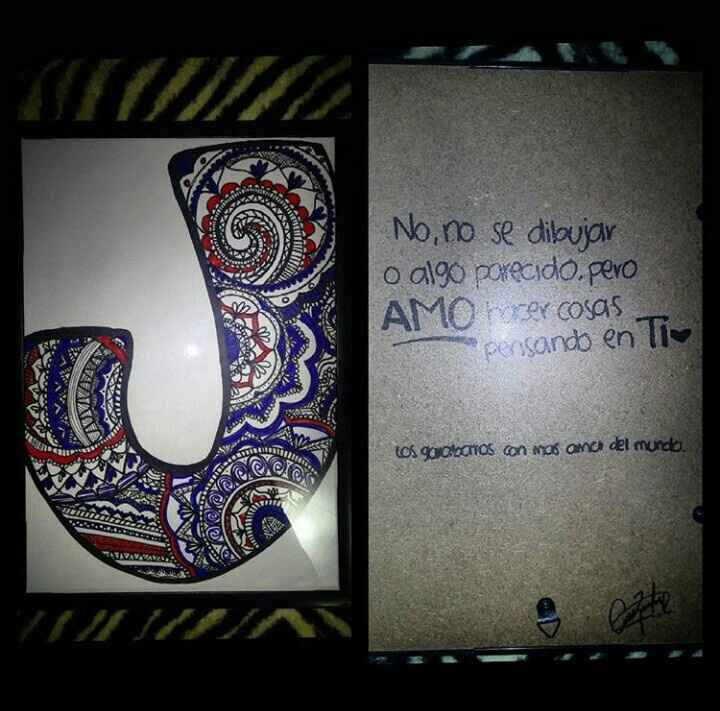 J
No, no se dibujar
o algo parecido. pero
AMO hacer cosas
pensando en Ti
Los garabatos con mas amor del mundo.